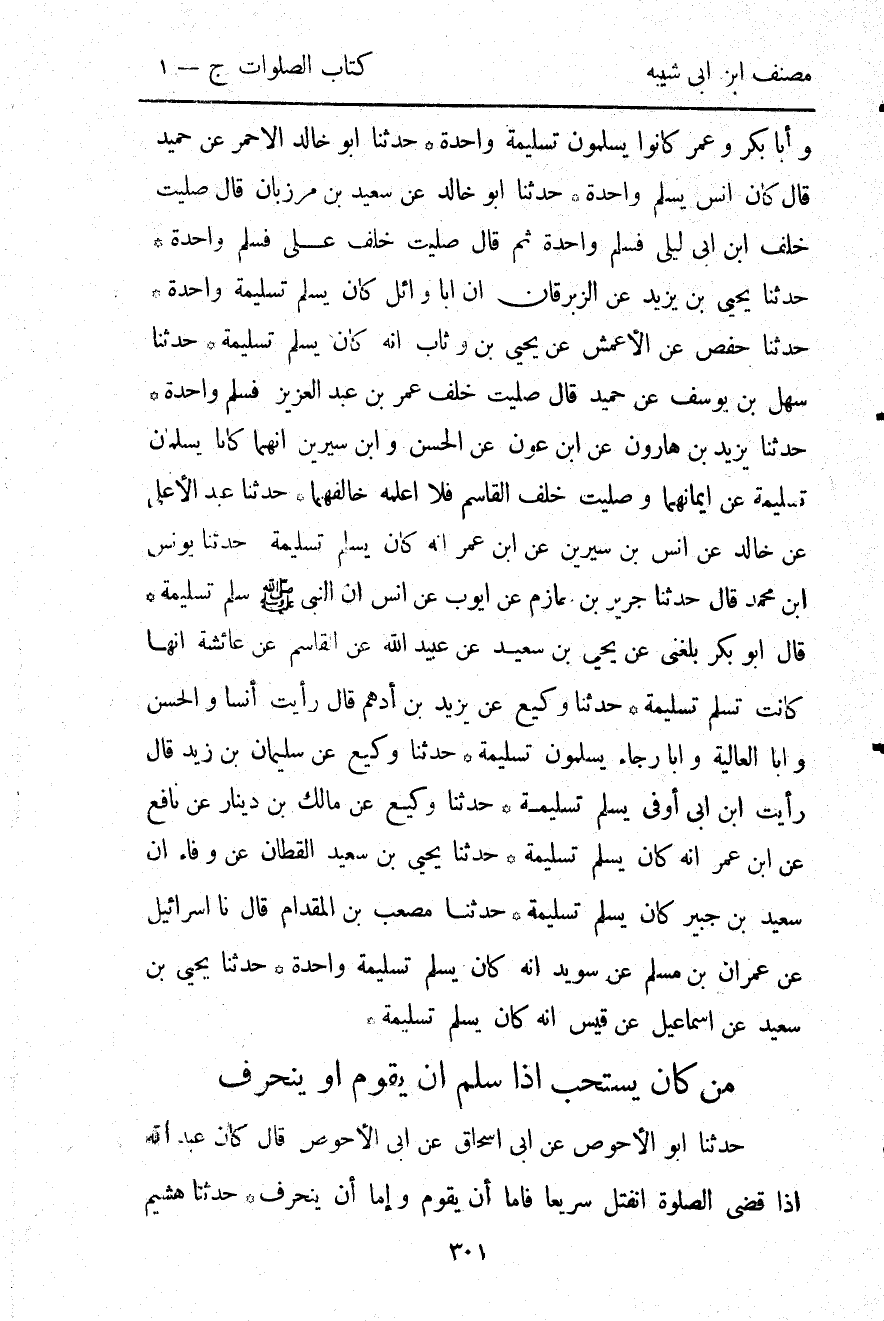 مصنف ابن ابى شيبه كتاب الصلوات ج — ١
و أبا بكر و عمر كانوا يسلمون تسليمة واحدة * حدثنا ابو خالد الاحمر عن حميد
قال كان انس يسلم واحدة * حدثنا ابو خالد عن سعيد بن مرزبان قال صليت
خلف ابن ابى ليلى فسلم واحدة ثم قال صليت خلف عـلى فسلم واحدة *
حدثنا يحيى بن يزيد عن الزبرقان ان ابا وائل كان يسلم تسليمة واحدة *
حدثنا حفص عن الأعمش عن يحيى بن وثاب انه كان يسلم تسليمة * حدثنا
سهل بن يوسف عن حميد قال صليت خلف عمر بن عبد العزيز فسلم واحدة *
حدثنا يزيد بن هارون عن ابن عون عن الحسن و ابن سيرين انهما كانا يسلمان
تسليمة عن ايمانهما و صليت خلف القاسم فلا اعلمه خالفهما * حدثنا عبد الأعلى
عن خالد عن انس بن سيرين عن ابن عمر انه كان يسلم تسليمة حدثنا يونس
ابن محمد قال حدثنا جرير بن حازم عن ايوب عن انس ان النبى ﷺ سلم تسليمة *
قال ابو بكر بلغنى عن يحيى بن سعيـد عن عبيد الله عن القاسم عن عائشة انهـا
كانت تسلم تسليمة * حدثنا وكيع عن يزيد بن أدهم قال رأيت أنسا و الحسن
و ابا العالية و ابا رجاء يسلمون تسليمة * حدثنا وكيـع عن سليمان بن زيد قال
رأيت ابن ابى أوفى يسلم تسليمـة * حدثنا وكيـع عن مالك بن دينار عن نافع
عن ابن عمر انه كان يسلم تسليمة * حدثنا يحيى بن سعيد القطان عن وفاء ان
سعيد بن جبير كان يسلم تسليمة * حدثنـا مصعب بن المقدام قال نا اسرائيل
عن عمران بن مسلم عن سويد انه كان يسلم تسليمة واحدة * حدثنا يحيى بن
سعيد عن اسماعيل عن قيس انه كان يسلم تسليمة *
من كان يستحب اذا سلم ان يقوم او ينحرف
حدثنا ابو الأحوص عن ابى اسحاق عن ابى الأحوص قال كان عبد الله
اذا قضى الصلوة انفتل سريعا فاما أن يقوم و إما أن ينحرف * حدثنا هشيم
٣٠١